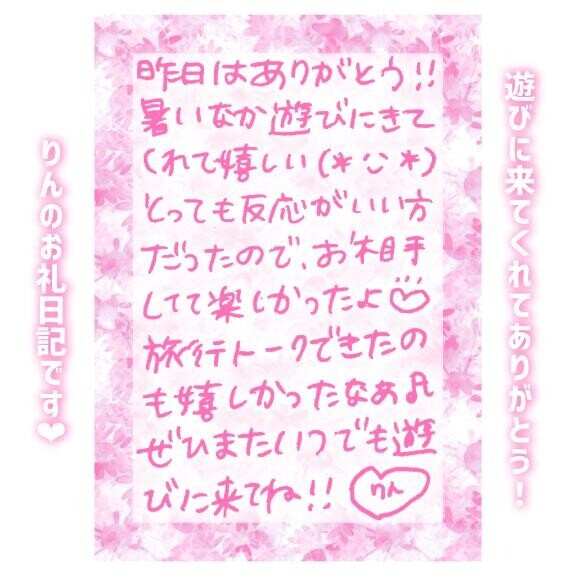 遊びに来てくれてありがとう！
昨日はありがとう!!
暑いなか遊びにきて
くれて嬉しい(*ᴗ*)
とっても反応がいい方
だったので、お相手
してて楽しかったよ♡
旅行トークできたの
も嬉しかったなぁ♫
ぜひまたいつでも遊
びに来てね!!
りん
りんのお礼日記です❤